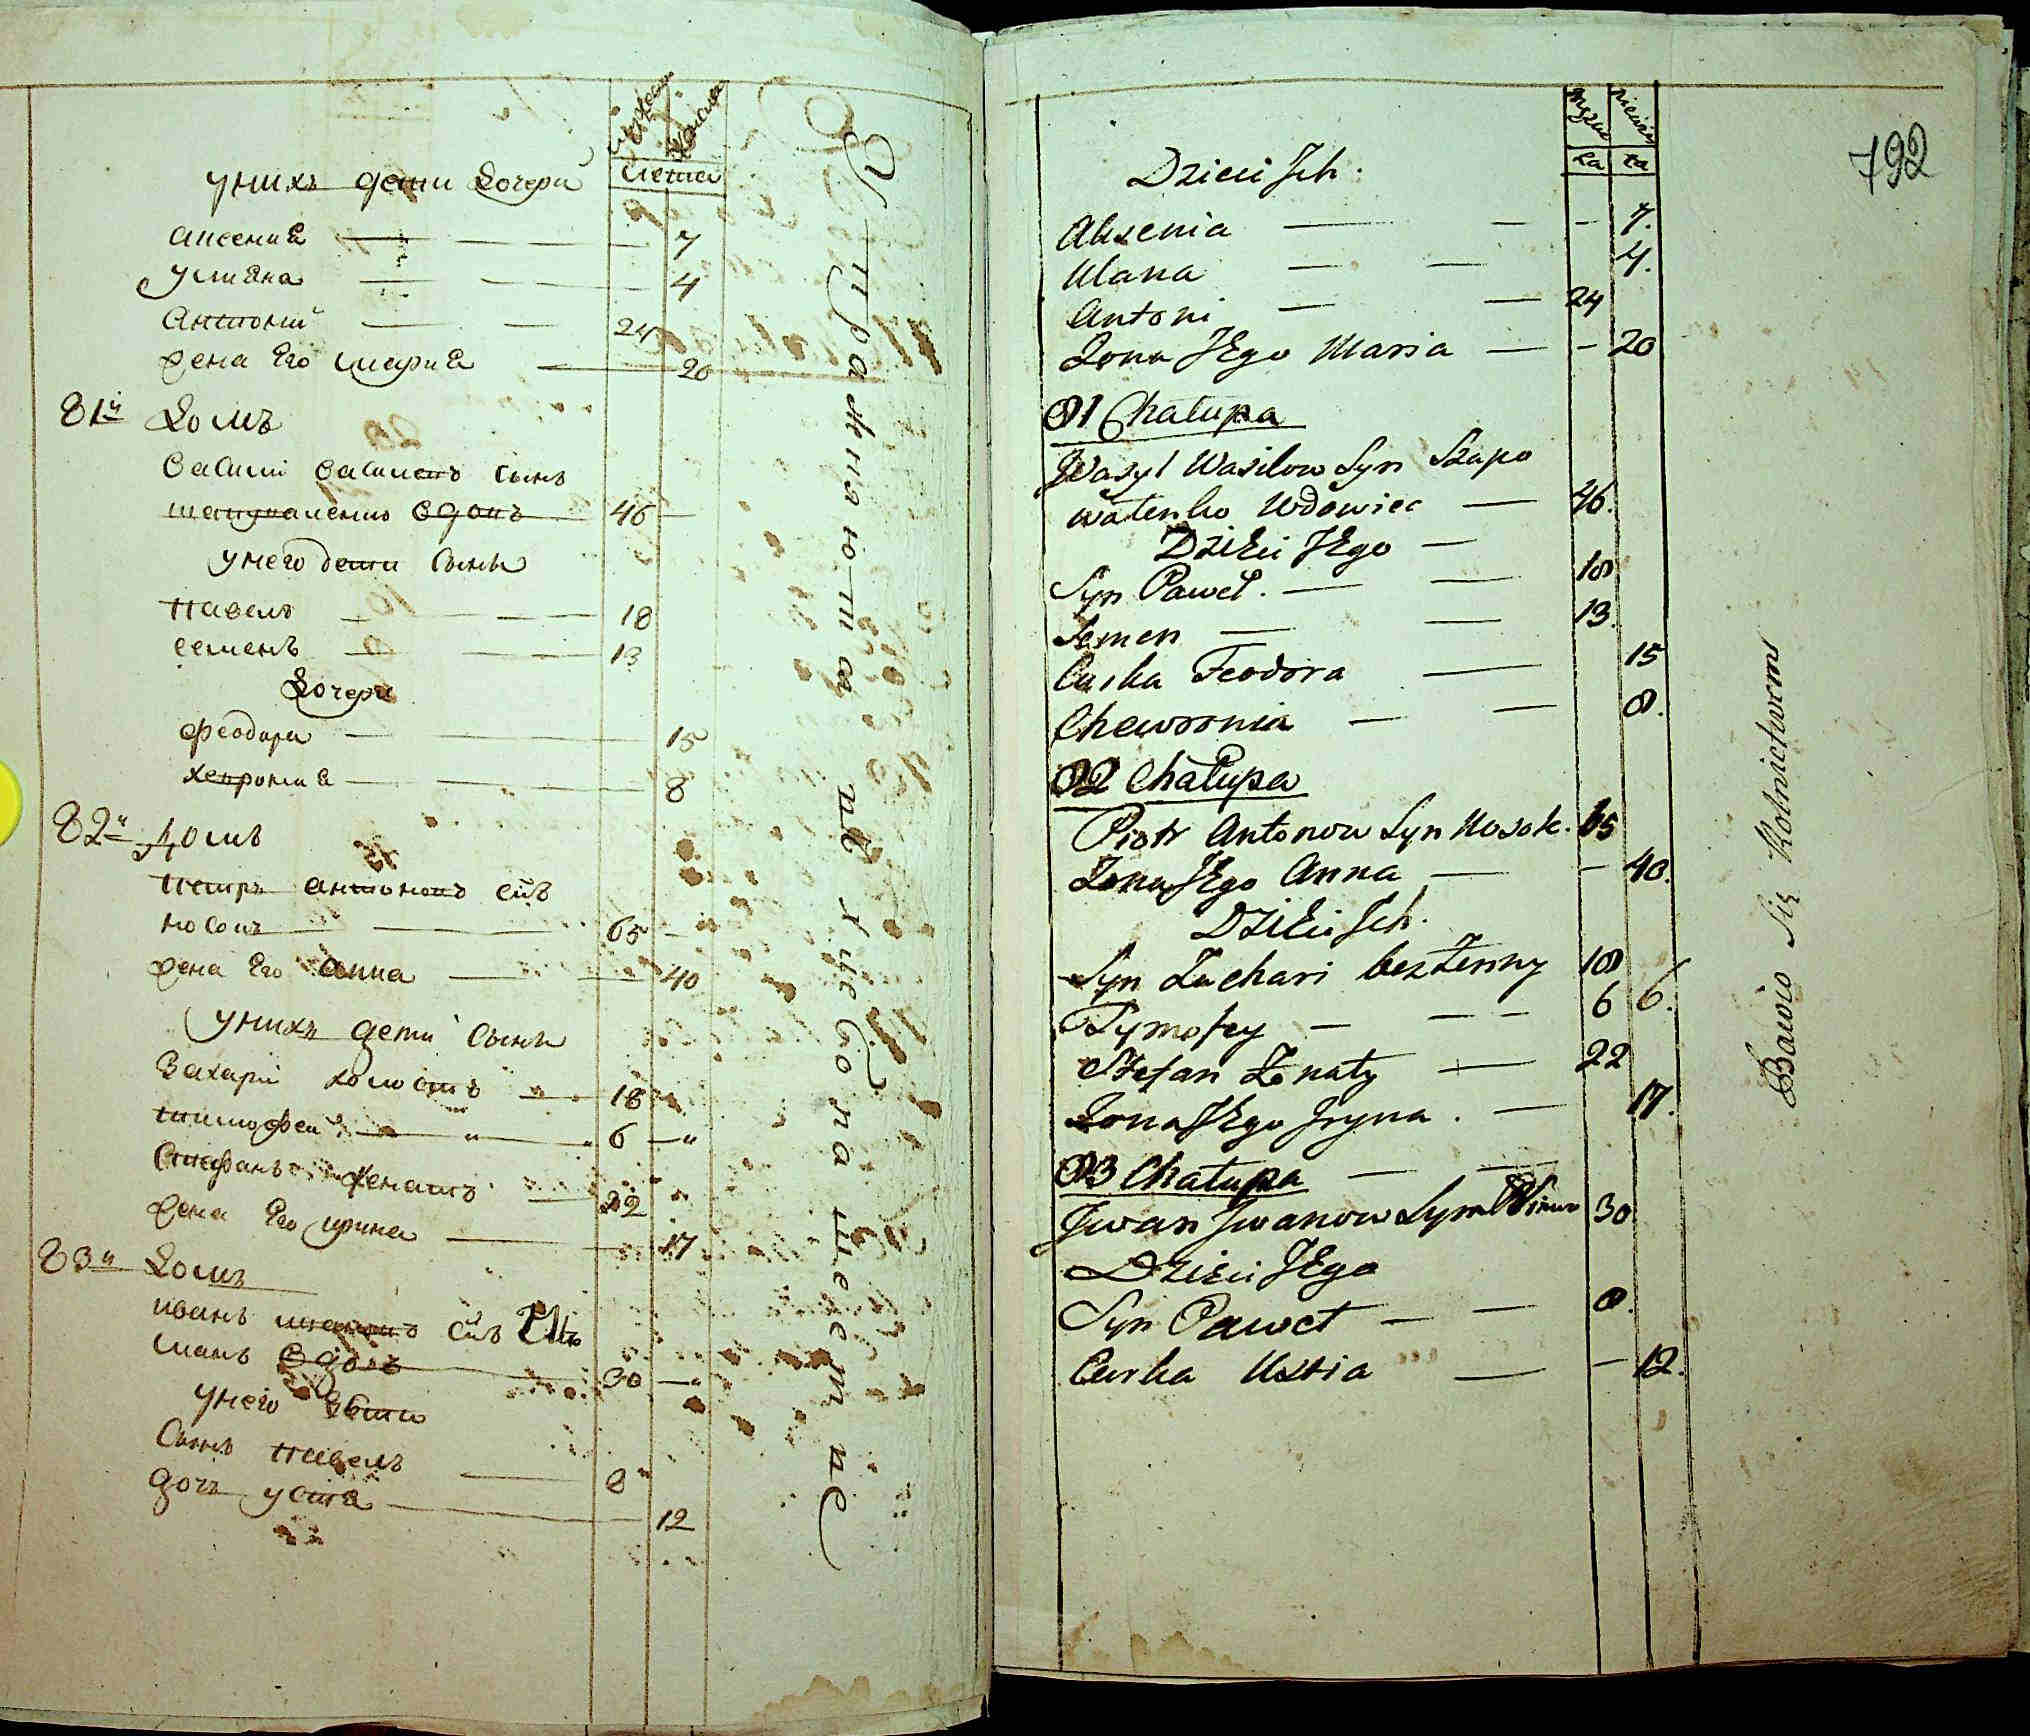 Лета
у нихъ дети дочери
аксения 7
улияна 4
антоний 24
жена его мария 20
81й домъ
василий василевъ сынъ
шаповаленко вдовъ 46
у него дети сыны
павелъ 18
семенъ 13
дочери
феодора 15
хеврония 8
82й домъ
петръ антоновъ сынъ
носокъ 65
жена его анна 40
у нихъ дети сыны
Захарий холостъ 18
тимофей 6
Стефанъ женатъ 22
жена его ирина 17
83й домъ
иванъ ивановъ сынъ
вдовъ 30
у него дети
Сынъ павелъ 8
дочь устия 12
Упражняются в хлебопашестве
792
Dzieci Jch.
Aksenia — — — 7.
Ulana — — 4.
Antoni — — 24
Zona JEgo Maria — — 20
81 Chałupa
Wasyl Wasilow Syn Szapo
watenko Wdowiec — 46.
Dzieci JEgo —
Syn Paweł. — — 18
Semen — — 13.
Curka Feodora — 15
Chewronia — — 8.
82 Chałupa
Piotr Antonow Syn Nosok. 65
Zona JEgo Anna — — 40.
Dzieci Jch.
Syn Zachari bezżenny 18
Tymofey — — — 6 6.
Stefan Żonaty — 22
Zona JEgo Jryna. — 17.
83 Chałupa — —
Jwan Jwanow Syn 30
Dzieci JEgo
Syn Paweł — — 8.
Curka Ustia — — 12.
Bawio Się Rolnictwem